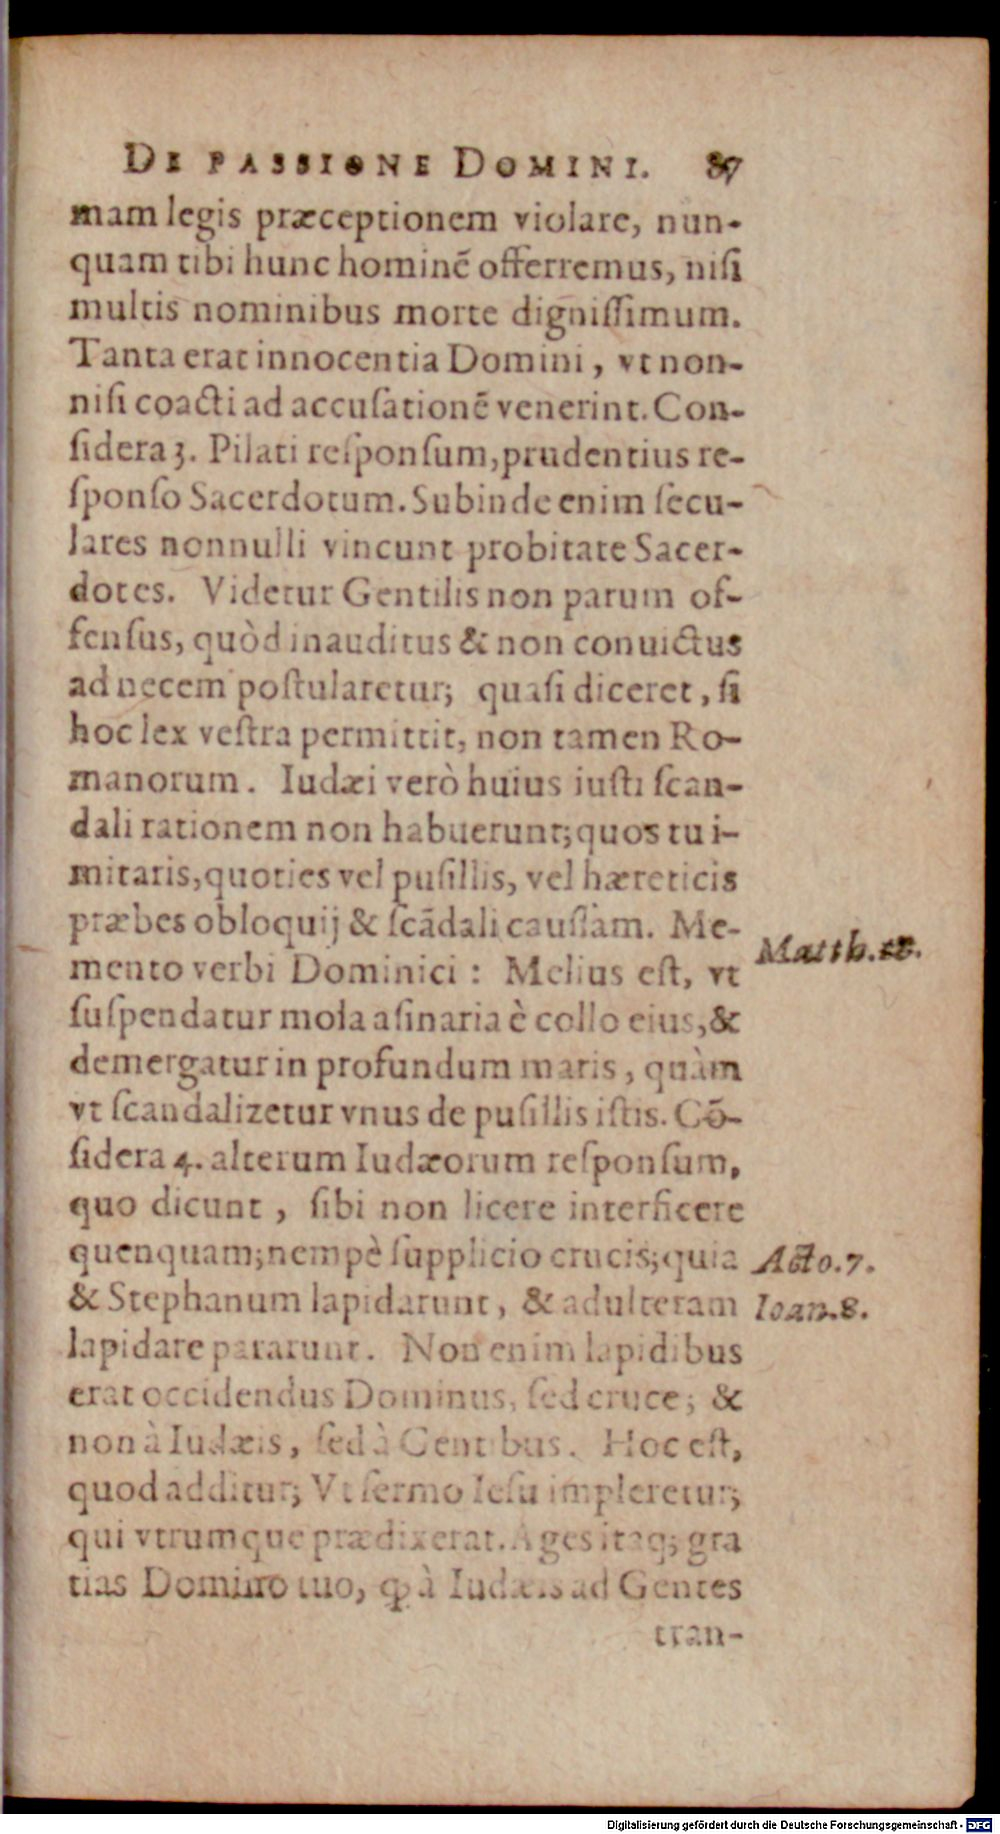 DE PASSIONE DOMINI. 87
mam legis præceptionem violare, nun-
quam tibi hunc hominē offerremus, niſi
multis nominibus morte digniſſimum.
Tanta erat innocentia Domini, vt non-
niſi coacti ad accuſationē venerint. Con-
ſidera 3. Pilati reſponſum, prudentius re-
ſponſo Sacerdotum. Subinde enim ſecu-
lares nonnulli vincunt probitate Sacer-
dotes. Videtur Gentilis non parum of-
fenſus, quòd inauditus & non conuictus
ad necem poſtularetur; quaſi diceret, ſi
hoc lex veſtra permittit, non tamen Ro-
manorum. Iudæi verò huius iuſti ſcan-
dali rationem non habuerunt; quos tu i-
mitaris, quoties vel puſillis, vel hæreticis
præbes obloquij & ſcādali cauſſam. Me-
mento verbi Dominici: Melius eſt, vt
Matth. 18.
ſuſpendatur mola aſinaria è collo eius, &
demergatur in profundum maris, quàm
vt ſcandalizetur vnus de puſillis iſtis. Cō-
ſidera 4. alterum Iudæorum reſponſum,
quo dicunt, ſibi non licere interficere
quenquam; nempè ſupplicio crucis; quia
Acto. 7.
& Stephanum lapidarunt, & adulteram
Ioan. 8.
lapidare pararunt. Non enim lapidibus
erat occidendus Dominus, ſed cruce; &
non à Iudæis, ſed à Gentibus. Hoc eſt,
quod additur; Vt ſermo Ieſu impleretur;
qui vtrumque prædixerat. Ages itaq; gra
tias Domino tuo, ꝙ à Iudæis ad Gentes
tran-
Digitalisierung gefördert durch die Deutsche Forschungsgemeinschaft - DFG